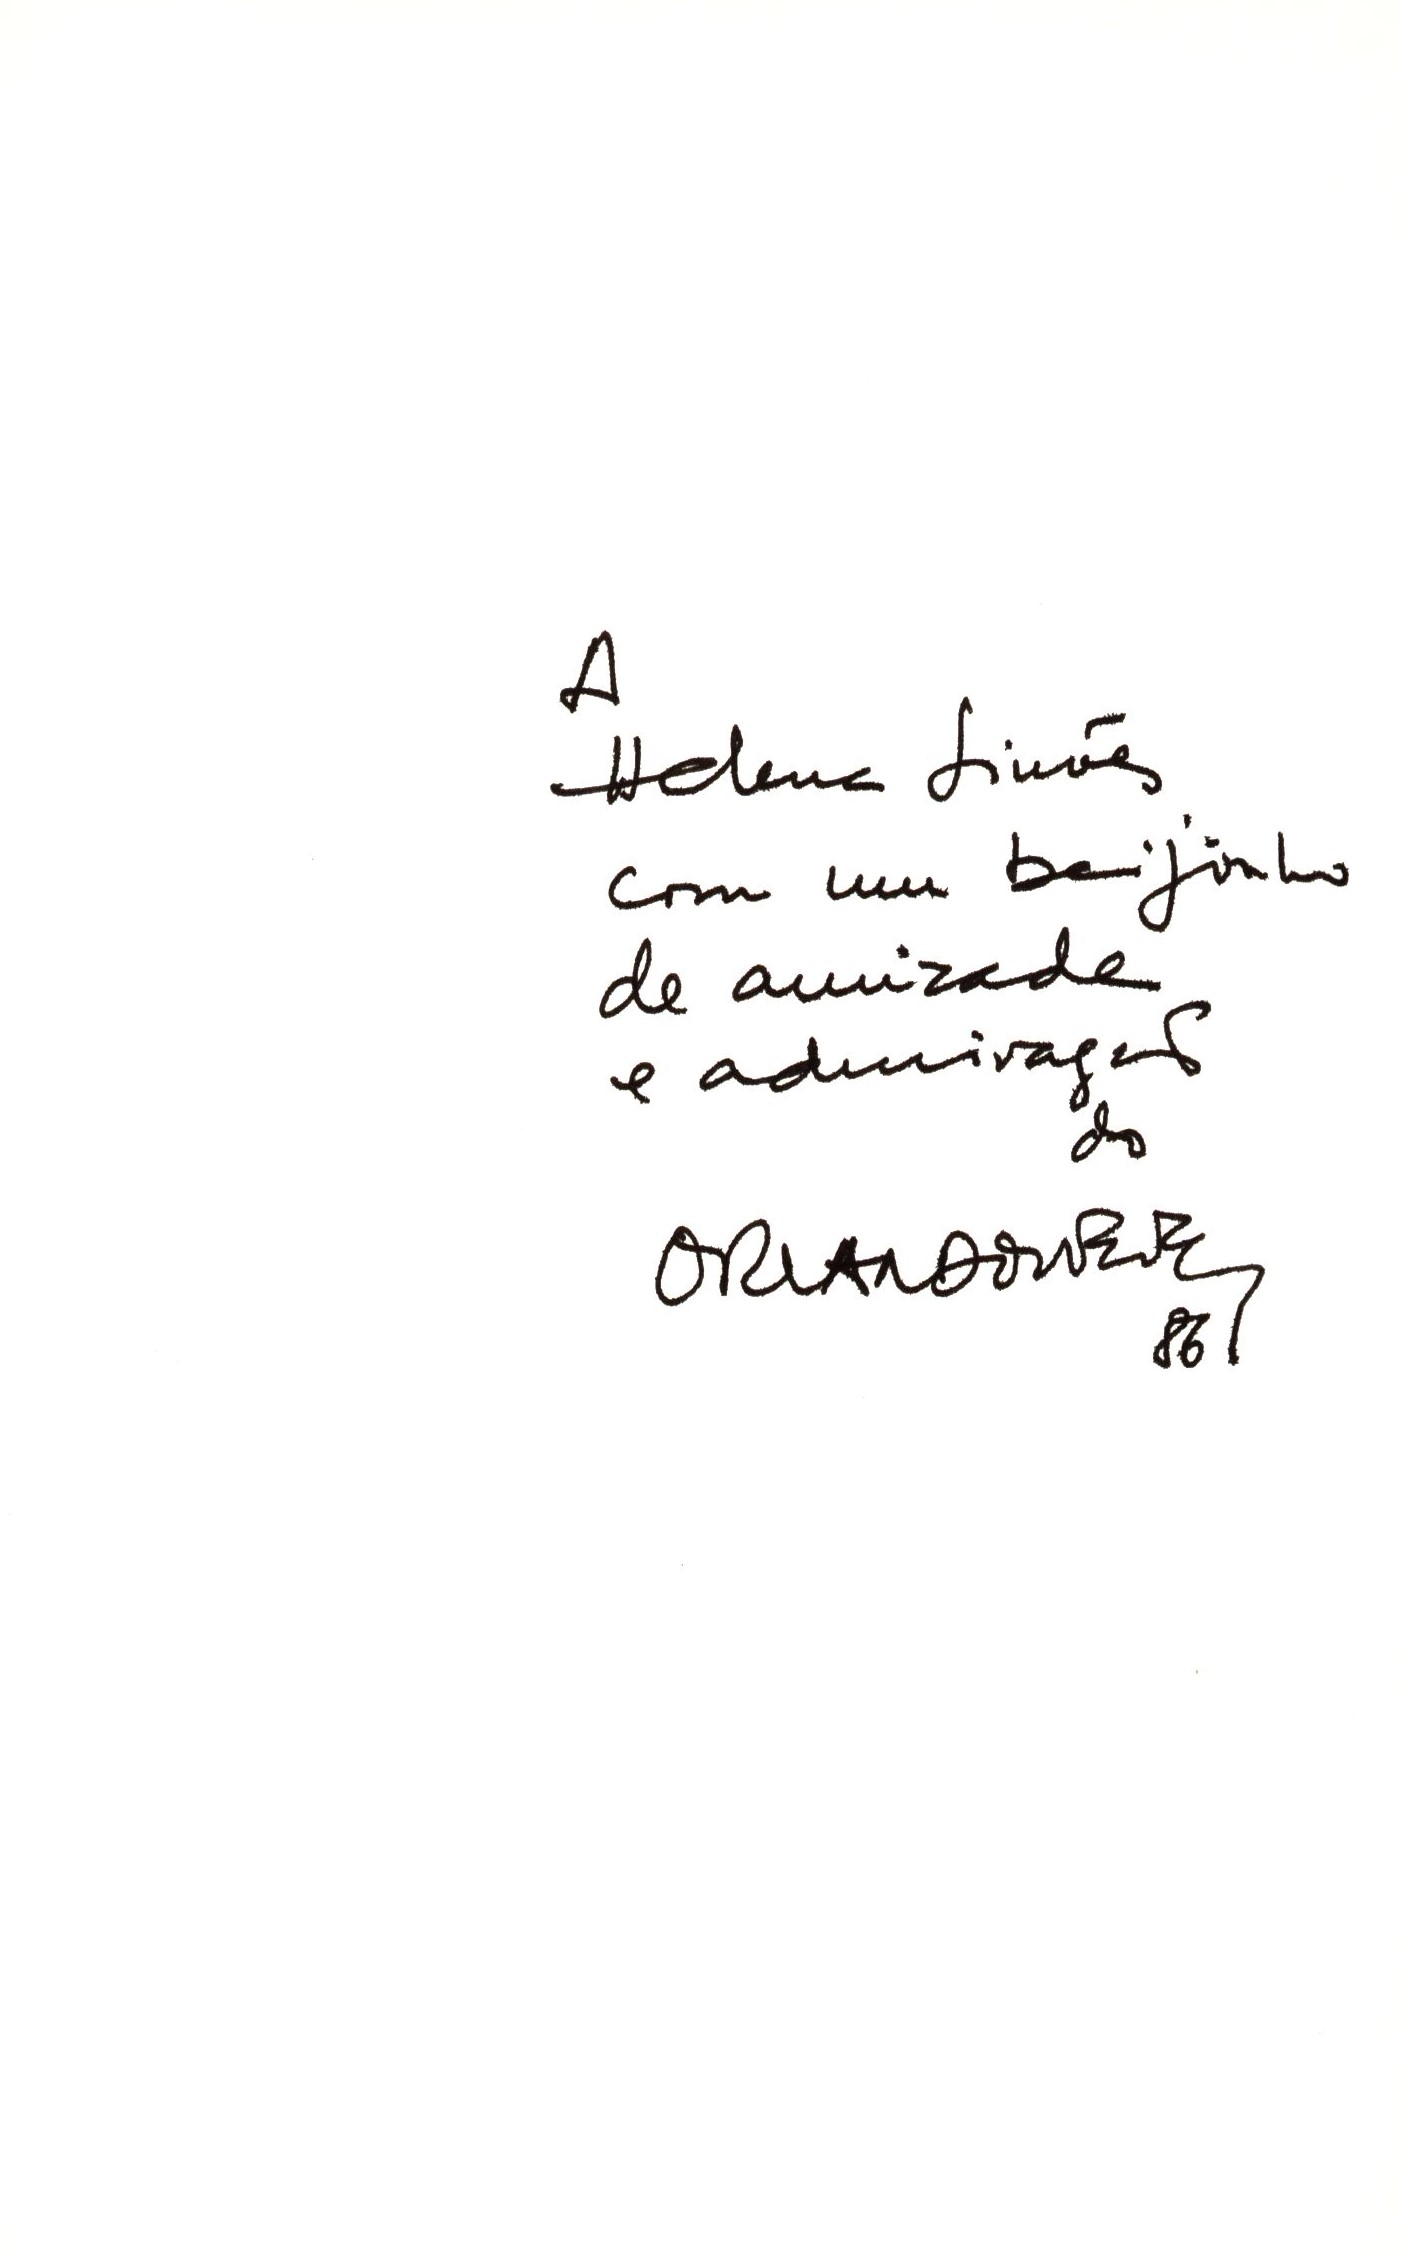 A
Helena Simões
com um beijinho
de amizade
e admiração
do
ORLANDO NEVES
86